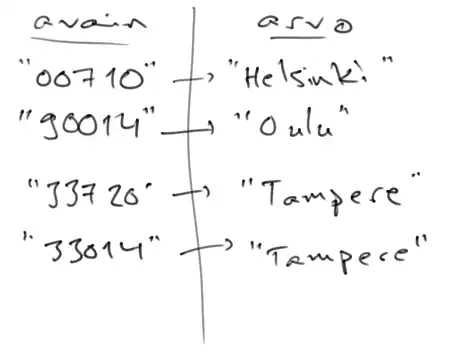 avain arvo
"00710" → "Helsinki"
"90014" → "Oulu"
"33720" → "Tampere"
"33014" → "Tampere"